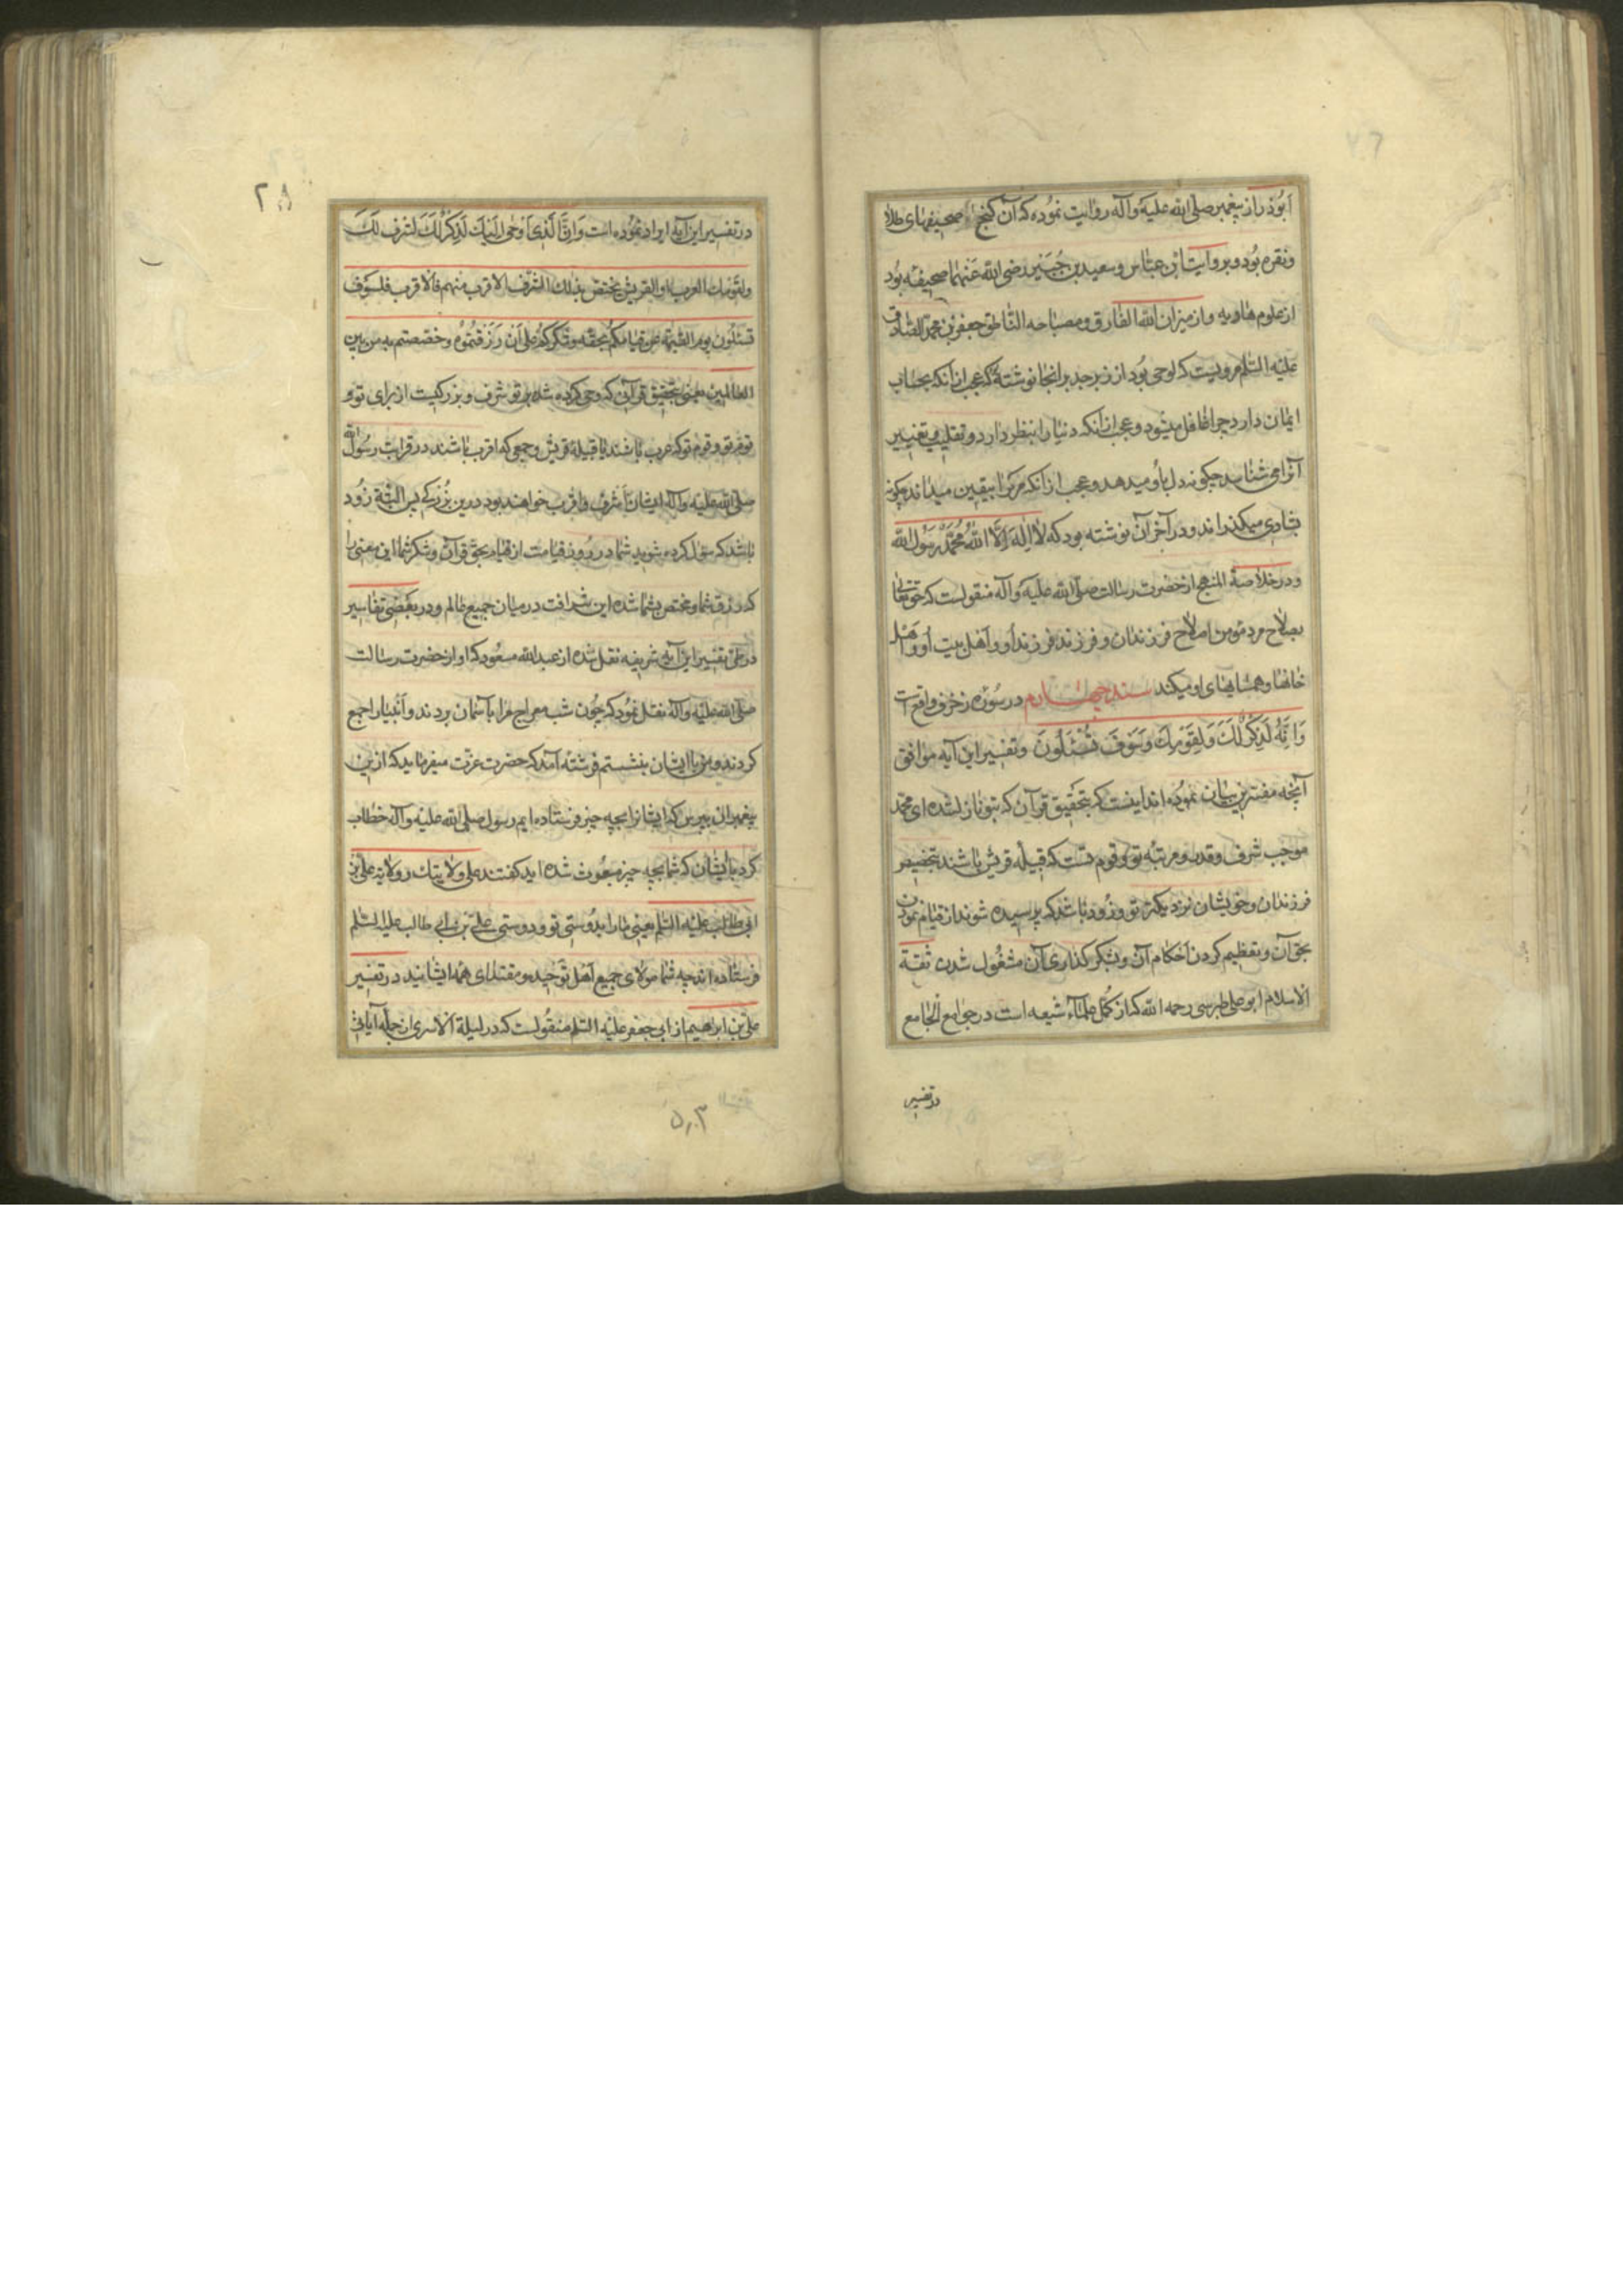 ابوذر از پیغمبر صلی الله علیه وآله روایت نموده که آن کنج صحیفهای طلا
ونقره بود وبروایت ابن عباس وسعید بن جُبَیر رضی الله عنهما صحیفه بود
از علوم ومیزان الله الفارق ومصباحه الناطق جعفر بن محمد الصادق
علیه السلم مرویست که لوحی بود از زبرجد برانجا نوشته که عجب از آنکه بحساب
ایمان دارد چرا غافل میشود وعجب از آنکه دنیا را بنظر دارد وتقلیب وتغییر
آنرا می شناسد چکونه دل باو میدهد وعجب از آنکه مرک را بیقین میداند چکونه
بشادی میکذراند ودر آخر آن نوشته بود که لا اله الا الله محمد رسول الله
ودر خلاصة المنهج از حضرت رسالت صلی الله علیه وآله منقولست که حقتعالی
بصلاح مرد مؤمن اصلاح فرزندان وفرزند فرزند او واهل بیت او واهل
خانها وهمسایهای او میکند سند چهارم در سوره زخرف واقع است
وَاِنَّهُ لَذِکْرٌ لَکَ وَلِقَوْمِکَ وَسَوْفَ تُسْئَلُونَ وتفسیر این آیه موافق
آنچه مفسرین بیان نموده اند اینست که بتحقیق قرآن که بتو نازل شده ای محمد
موجب شرف وقدر ومرتبه تو وقوم تست که قبیله قریش باشند بتخصیص
فرزندان وخویشان نزدیکتر تو وزود باشد که پرسیده شوند از قیام نمودن
بحق آن وتعظیم کردن احکام آن وبشکر کذاری آن مشغول شدن ثقة
الاسلام ابوعلی طبرسی رحمه الله که از کُمّل علماء شیعه است در جوامع الجامع
در تفسیر
۲۸
در تفسیر این آیه ایراد نموده است وَاِنَّ الَّذی اَوحی الیک لَذِکْرٌ لَکَ لشرف لَکَ
ولقومک العرب او القریش یختص بذلک الشرف الاقرب منهم فالاقرب فلسوف
تسئلون یوم القیمة عن قیامکم بحقه وشکرکم علی اَن رزقتموه وخصصتم به من بین
العالمین یعنی بتحقیق قرآن که وحی کرده شده بر تو شرف وبزرکیست از برای تو و
قوم تو وقوم تو که عرب باشند یا قبیله قریش وجمعی که اقرب باشند در قرابت رسول الله
صلی الله علیه وآله ایشان اشرف واقرب خواهند بود درین بزرکی پس البته زود
باشد که سؤل کرده شوید شما در روز قیامت از قیام بحق قرآن وشکر شما این معنی را
که رزق شما ومختص بشما شده این شرافت در میان جمیع عالم ودر بعضی تفاسیر
در طی تفسیر این آیه شریفه نقل شده از عبدالله مسعود که او از حضرت رسالت
صلی الله علیه وآله نقل نمود که چون شب معراج مرا بآسمان بردند وانبیا را جمع
کردند ومن با ایشان بنشستم فرشته آمد که حضرت عزت میفرماید که ازین
پیغمبران بپرس که ایشانرا بچه چیز فرستاده ایم رسول صلی الله علیه وآله خطاب
کرد بایشان که شما بچه چیز مبعوث شده اید کفتند علی ولایتک وولایة علی بن
ابی طالب علیه السلم یعنی ما را بدوستی تو ودوستی علی بن ابی طالب علیه السلم
فرستاده اند چه شما مولای جمیع اهل توحید ومقتدای همه ایشانید در تفسیر
علی بن ابراهیم از ابی جعفر علیه السلم منقولست که در لیلة الاسری از جمله آیاتی